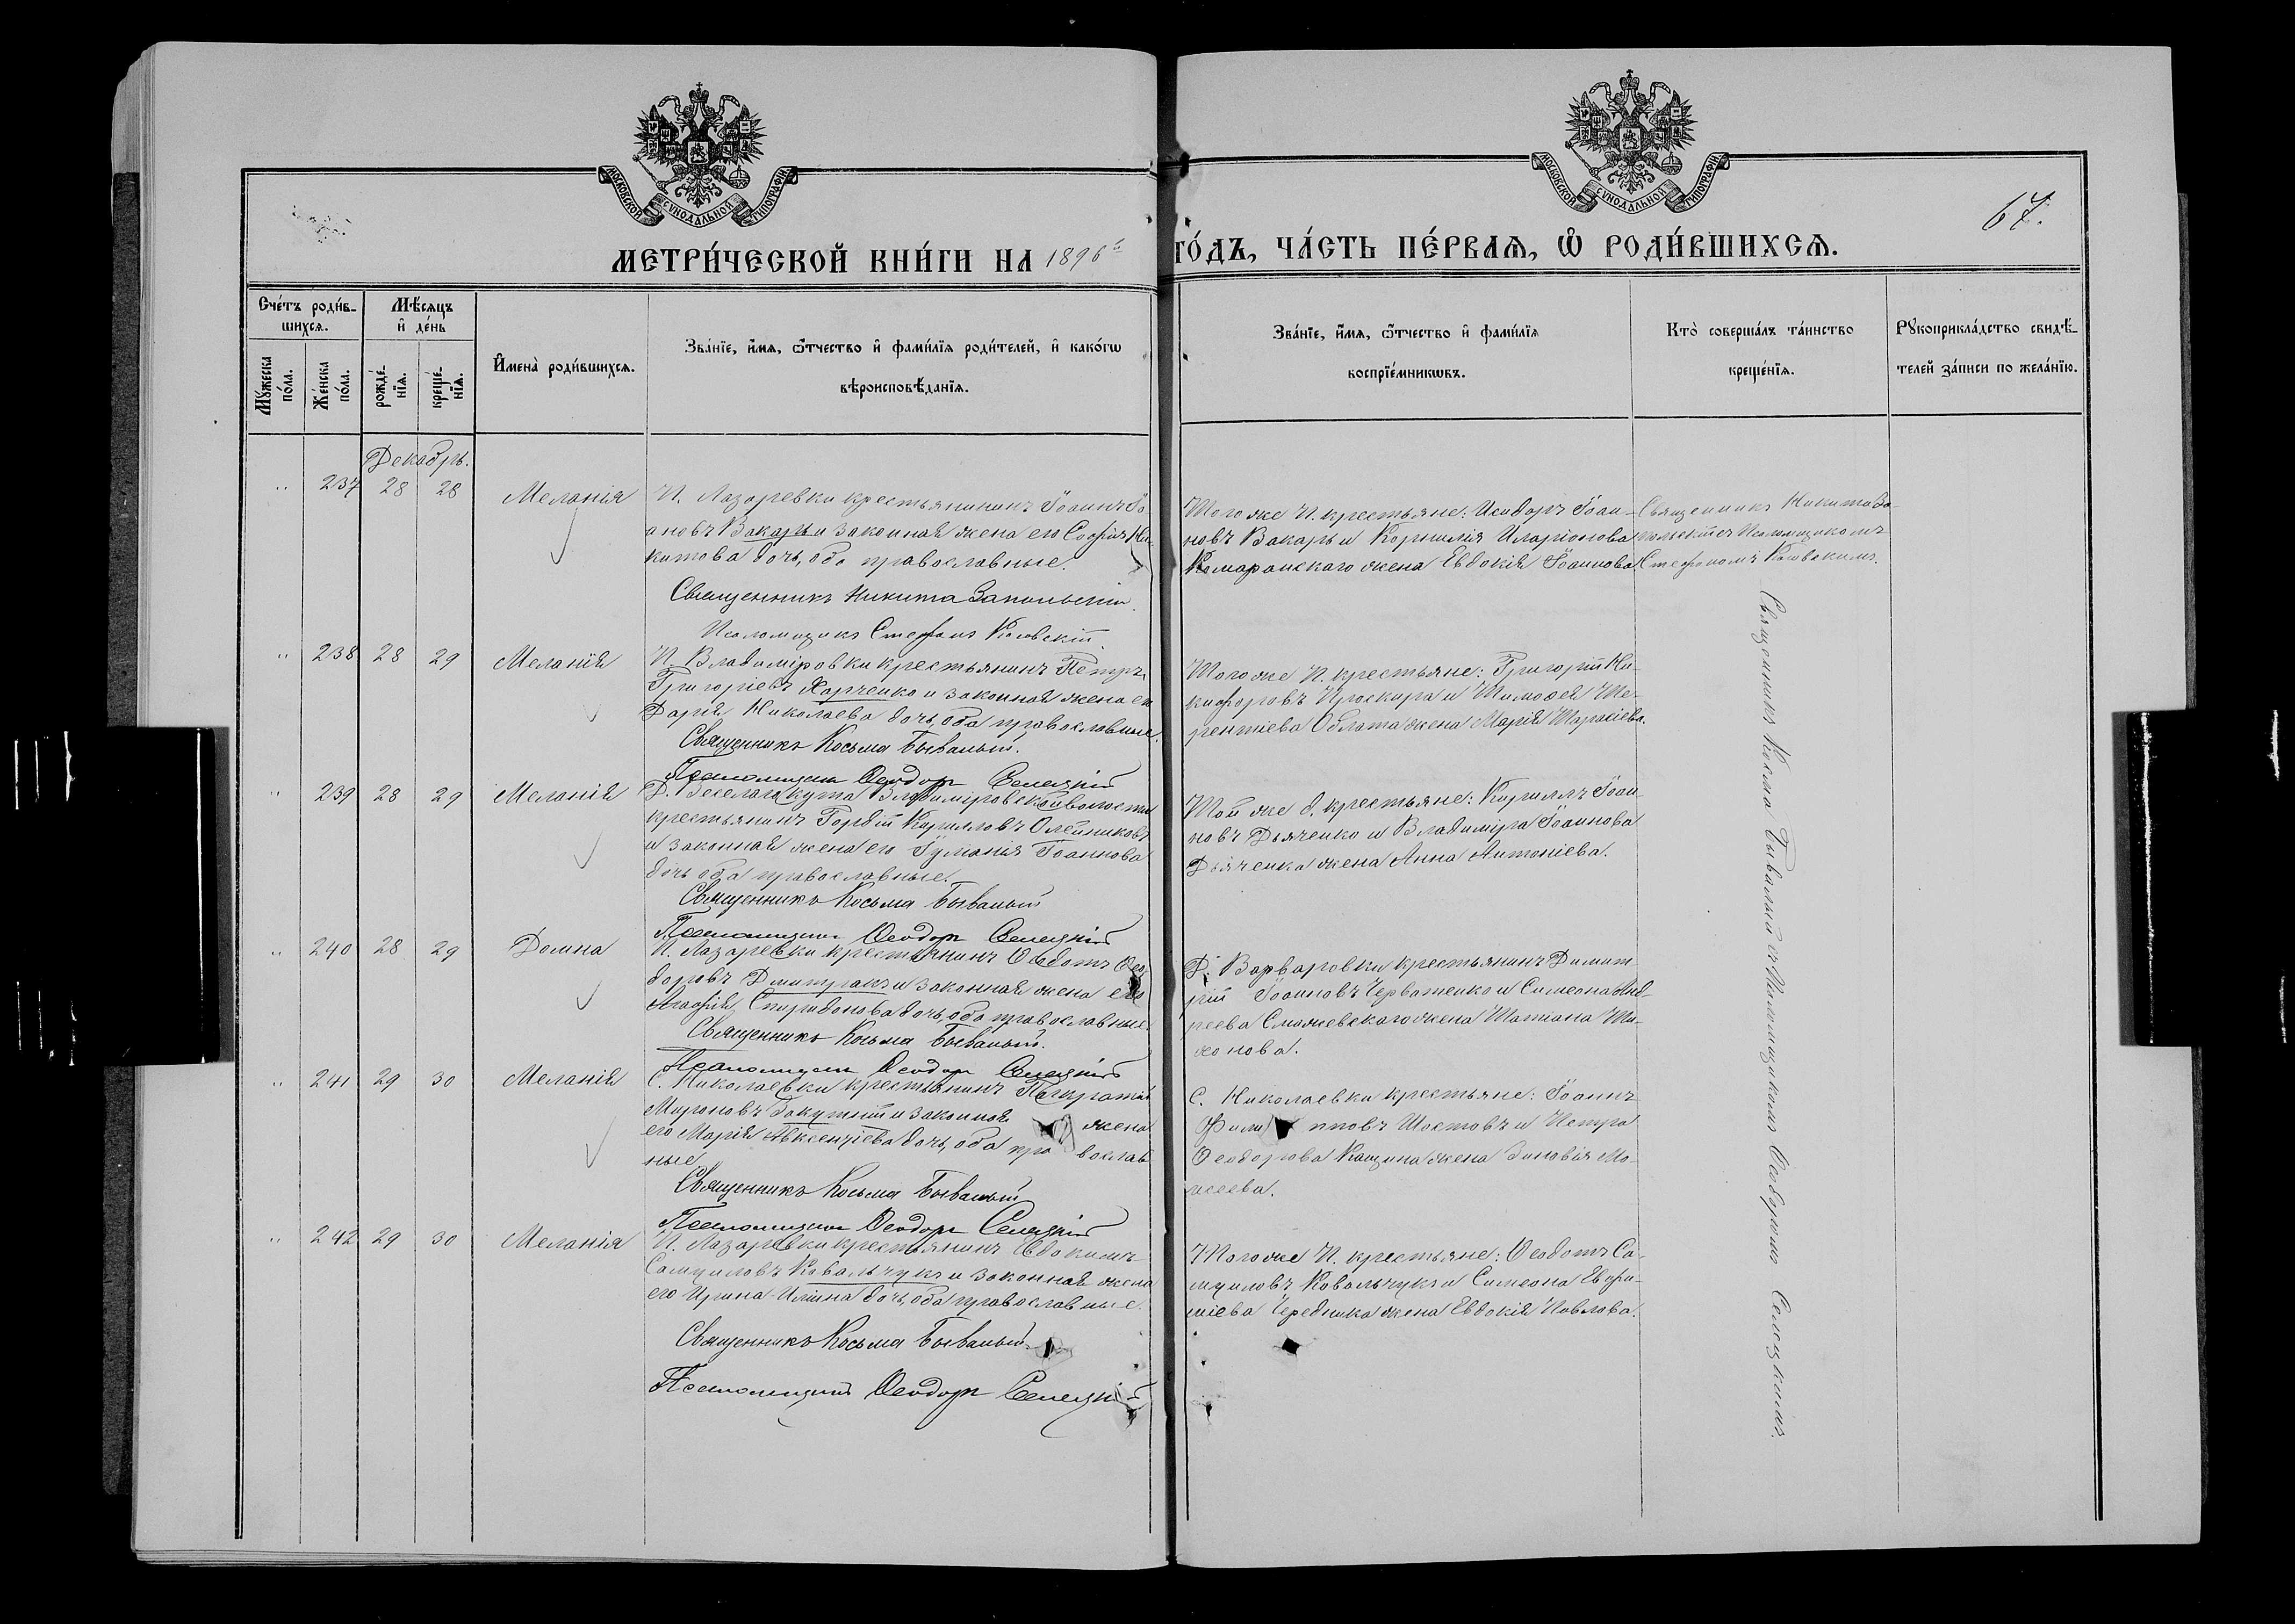 МОСКОВСКОЙ СѴНОДАЛЬНОЙ ТИПОГРАФІИ
МОСКОВСКОЙ СѴНОДАЛЬНОЙ ТИПОГРАФІИ
67.
МЕТРИ́ЧЕСКОЙ КНИ́ГИ НА 1896й ГО́ДЪ, ЧА́СТЬ ПЕ́РВАѦ, Ѡ҆ РОДИ́ВШИХСѦ.
Сче́тъ роди́в-
шихсѧ.
Мꙋ́жеска по́ла.
Же́нска по́ла.
Мѣ́сѧцъ и҆ де́нь
рожде́-
нїѧ.
креще́-
нїѧ.
И҆мена̀ роди́вшихсѧ.
Зва́нїе, и҆́мѧ, ѻ҆́тчество и҆ фами́лїѧ роди́телей, и҆ како́гѡ
вѣроисповѣ́данїѧ.
Зва́нїе, и҆́мѧ, ѻ҆́тчество и҆ фами́лїѧ
воспрїе́мникѡвъ.
Кто̀ соверша́лъ та́инство
креще́нїѧ.
Рꙋкоприкла́дство свидѣ́-
телей за́писи по жела́нїю.
Декабрь.
" 237 28 28 Меланія
П. Лазаревки крестьянинъ Іоаннъ Іо-
анновъ Вакарь и законная жена его Софія Ни-
китова дочь, оба православные.
Священникъ Никита Запольскій
Псаломщикъ Стефанъ
Того же П. крестьяне: Исидоръ Іоан-
новъ Вакарь и Корнилія Иларіонова
Комаранскаго жена Евдокія Іоаннова.
Священникъ Никита За-
польскій съ Псаломщикомъ
Стефаномъ
" 238 28 29 Меланія
П. Владиміровки крестьянинъ Петръ
Григоріевъ Харченко и законная жена его
Дарія Николаева дочь, оба православные.
Священникъ Косьма Бывалый.
Псаломщикъ Ѳеодоръ Селецкій
Того же П. крестьяне: Григорій Ни-
кифоровъ Проскура и Тимоѳея Те-
рентіева Облата жена Марія
Священникъ Косма Бывалый съ Псаломщикомъ Ѳеодоромъ Селецкимъ.
" 239 28 29 Меланія
Д. Веселаго кута Владиміровской волости
крестьянинъ Гордій Кирилловъ Олейниковъ
и законная жена его Іуліанія Іоаннова
дочь оба православные.
Священникъ Косьма Бывалый
Псаломщикъ Ѳеодоръ Селецкій
Той же д. крестьяне: Кириллъ Іоан-
новъ Дьяченко и Владиміра Іоаннова
Дьяченка жена Анна Антоніева.
" 240 28 29 Домна
П. Лазаревки крестьянинъ Ѳеодотъ Ѳео-
доровъ Дмитракъ и законная жена его
Агаѳія Спиридонова дочь, оба православные.
Священникъ Косьма Бывалый.
Псаломщикъ Ѳеодоръ Селецкій
Д. Варваровки крестьянинъ Димит-
рій Іоанновъ Черватенко и Симеона Анд-
реева Смаженскаго жена Татіана Ти-
хонова.
" 241 29 30 Меланія
С. Николаевки крестьянинъ Панкратій
Мироновъ Закутній и законная жена
его Марія Авксентіева дочь, оба православ
ные.
Священникъ Косьма Бывалый
Псаломщикъ Ѳеодоръ Селецкій
С. Николаевки крестьяне: Іоаннъ
Филипповъ Шостовъ и Петра
Ѳеодорова Кащина жена Зиновія Мо-
исеева.
" 242 29 30 Меланія
П. Лазаревки крестьянинъ Евдокимъ
Самуиловъ Ковальчукъ и законная жена
его Ирина Иліина дочь, оба православные.
Священникъ Косьма Бывалый.
Псаломщикъ Ѳеодоръ Селецкій
Того же П. крестьяне: Ѳеодотъ Са-
муиловъ Ковальчукъ и Симеона Евфи-
міева Чередника жена Евдокія Павлова.